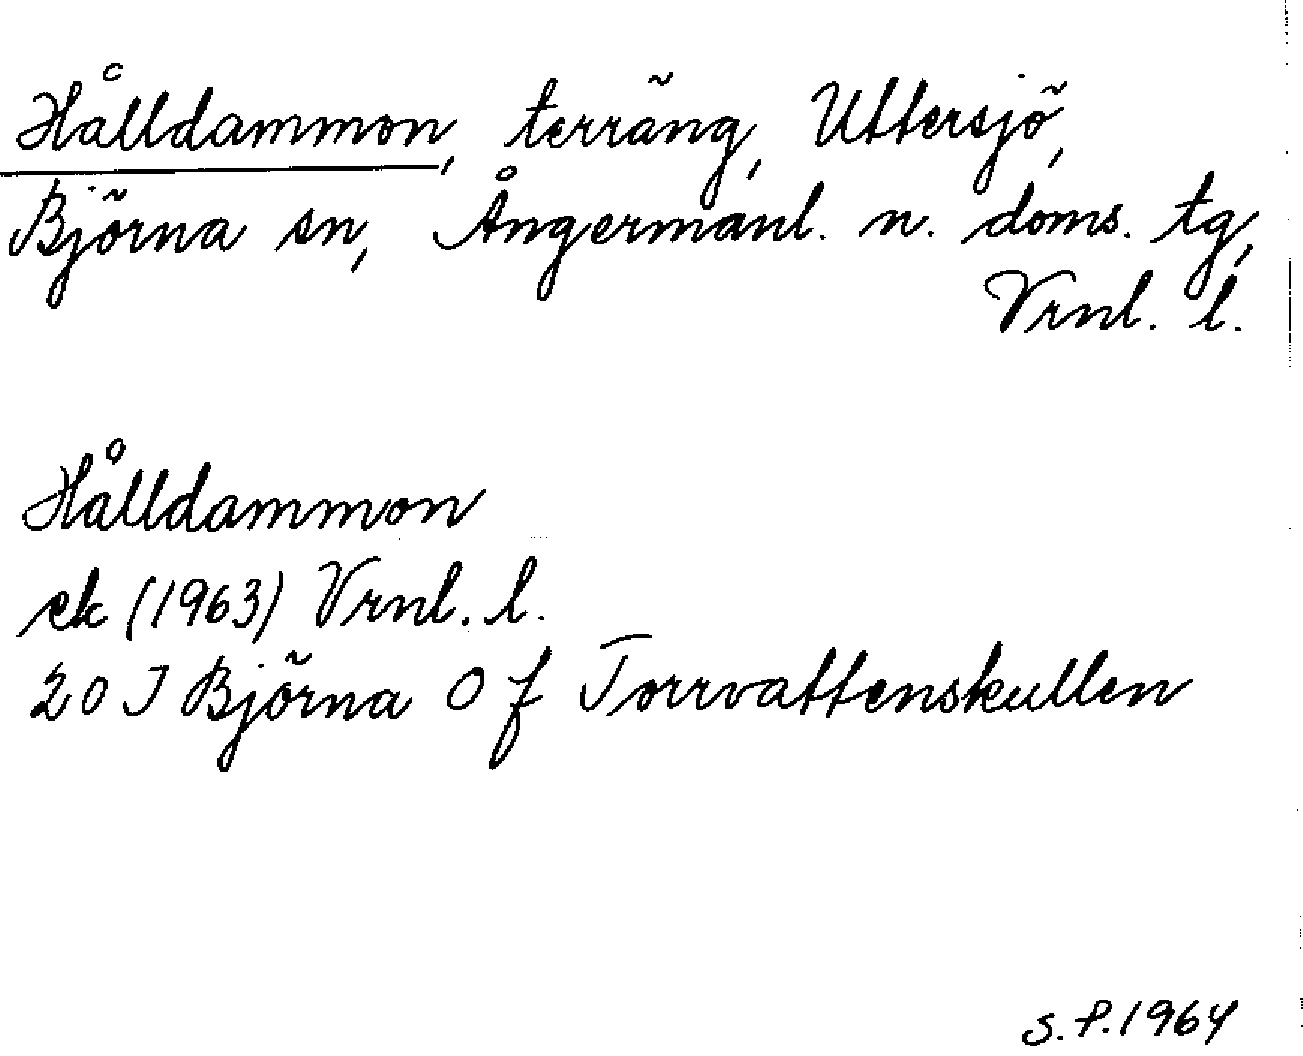 Hålldammon, terräng, Uttersjö,
Björna sn, Ångermanl. n. doms. tg,
Vrnl. l.
Hålldammon
ek (1963) Vrnl. l.
20 I Björna O f Torrvattenskullen
S.P. 1964